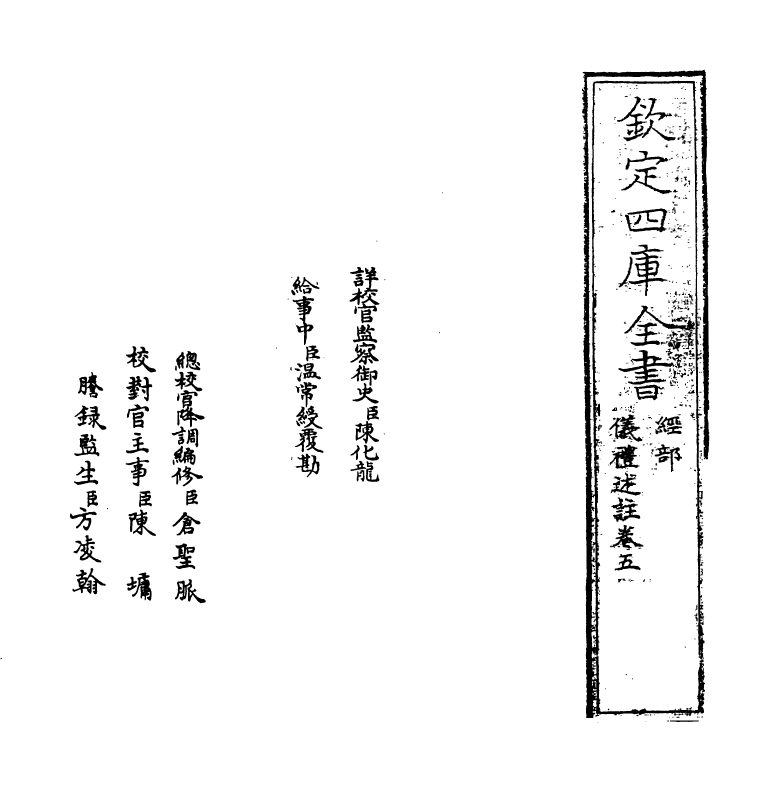 欽定四庫全書
經部
儀禮述註卷五
詳校官監察御史臣陳化龍
給事中臣温常綬覆勘
總校官降調編修臣倉聖脈
校對官主事臣陳墉
謄録監生臣方凌翰